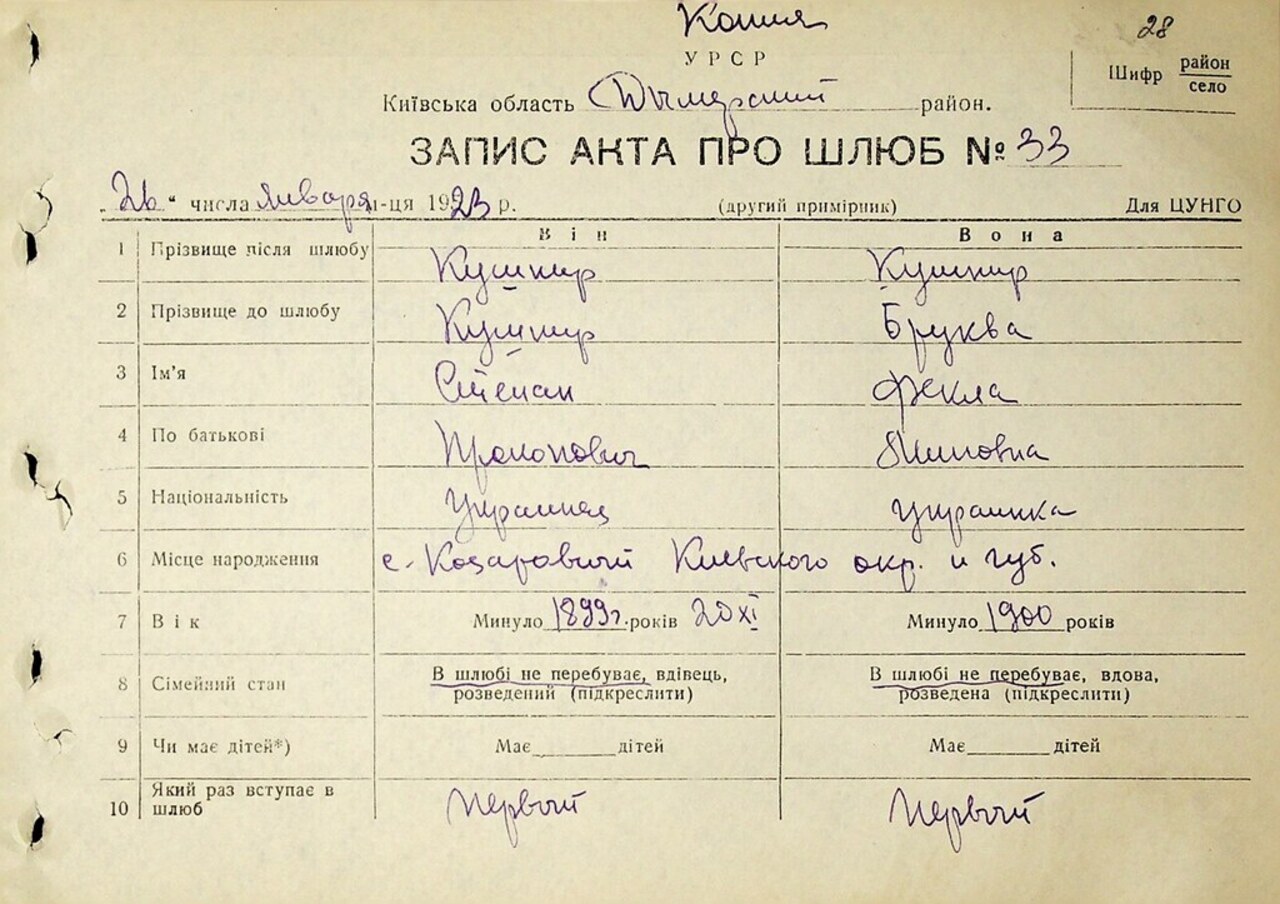 Копия
28
УРСР
Шифр район
село
Київська область Дымерский район.
ЗАПИС АКТА ПРО ШЛЮБ № 33
„26“ числа января м-ця 1923 р. (другий примірник) Для ЦУНГО
Він Вона
1 Прізвище після шлюбу Кушнир Кушнир
2 Прізвище до шлюбу Кушнир Бруква
3 Ім'я Степан Фекла
4 По батькові Прокопович
5 Національність украинец украинка
6 Місце народження с. Козаровичи Киевского окр. и губ.
7 Вік Минуло 1899г. років 20 XI Минуло 1900 років
8 Сімейний стан В шлюбі не перебуває, вдівець, В шлюбі не перебуває, вдова,
розведений (підкреслити) розведена (підкреслити)
9 Чи має дітей*) Має______дітей Має______дітей
10 Який раз вступає в шлюб первый первый